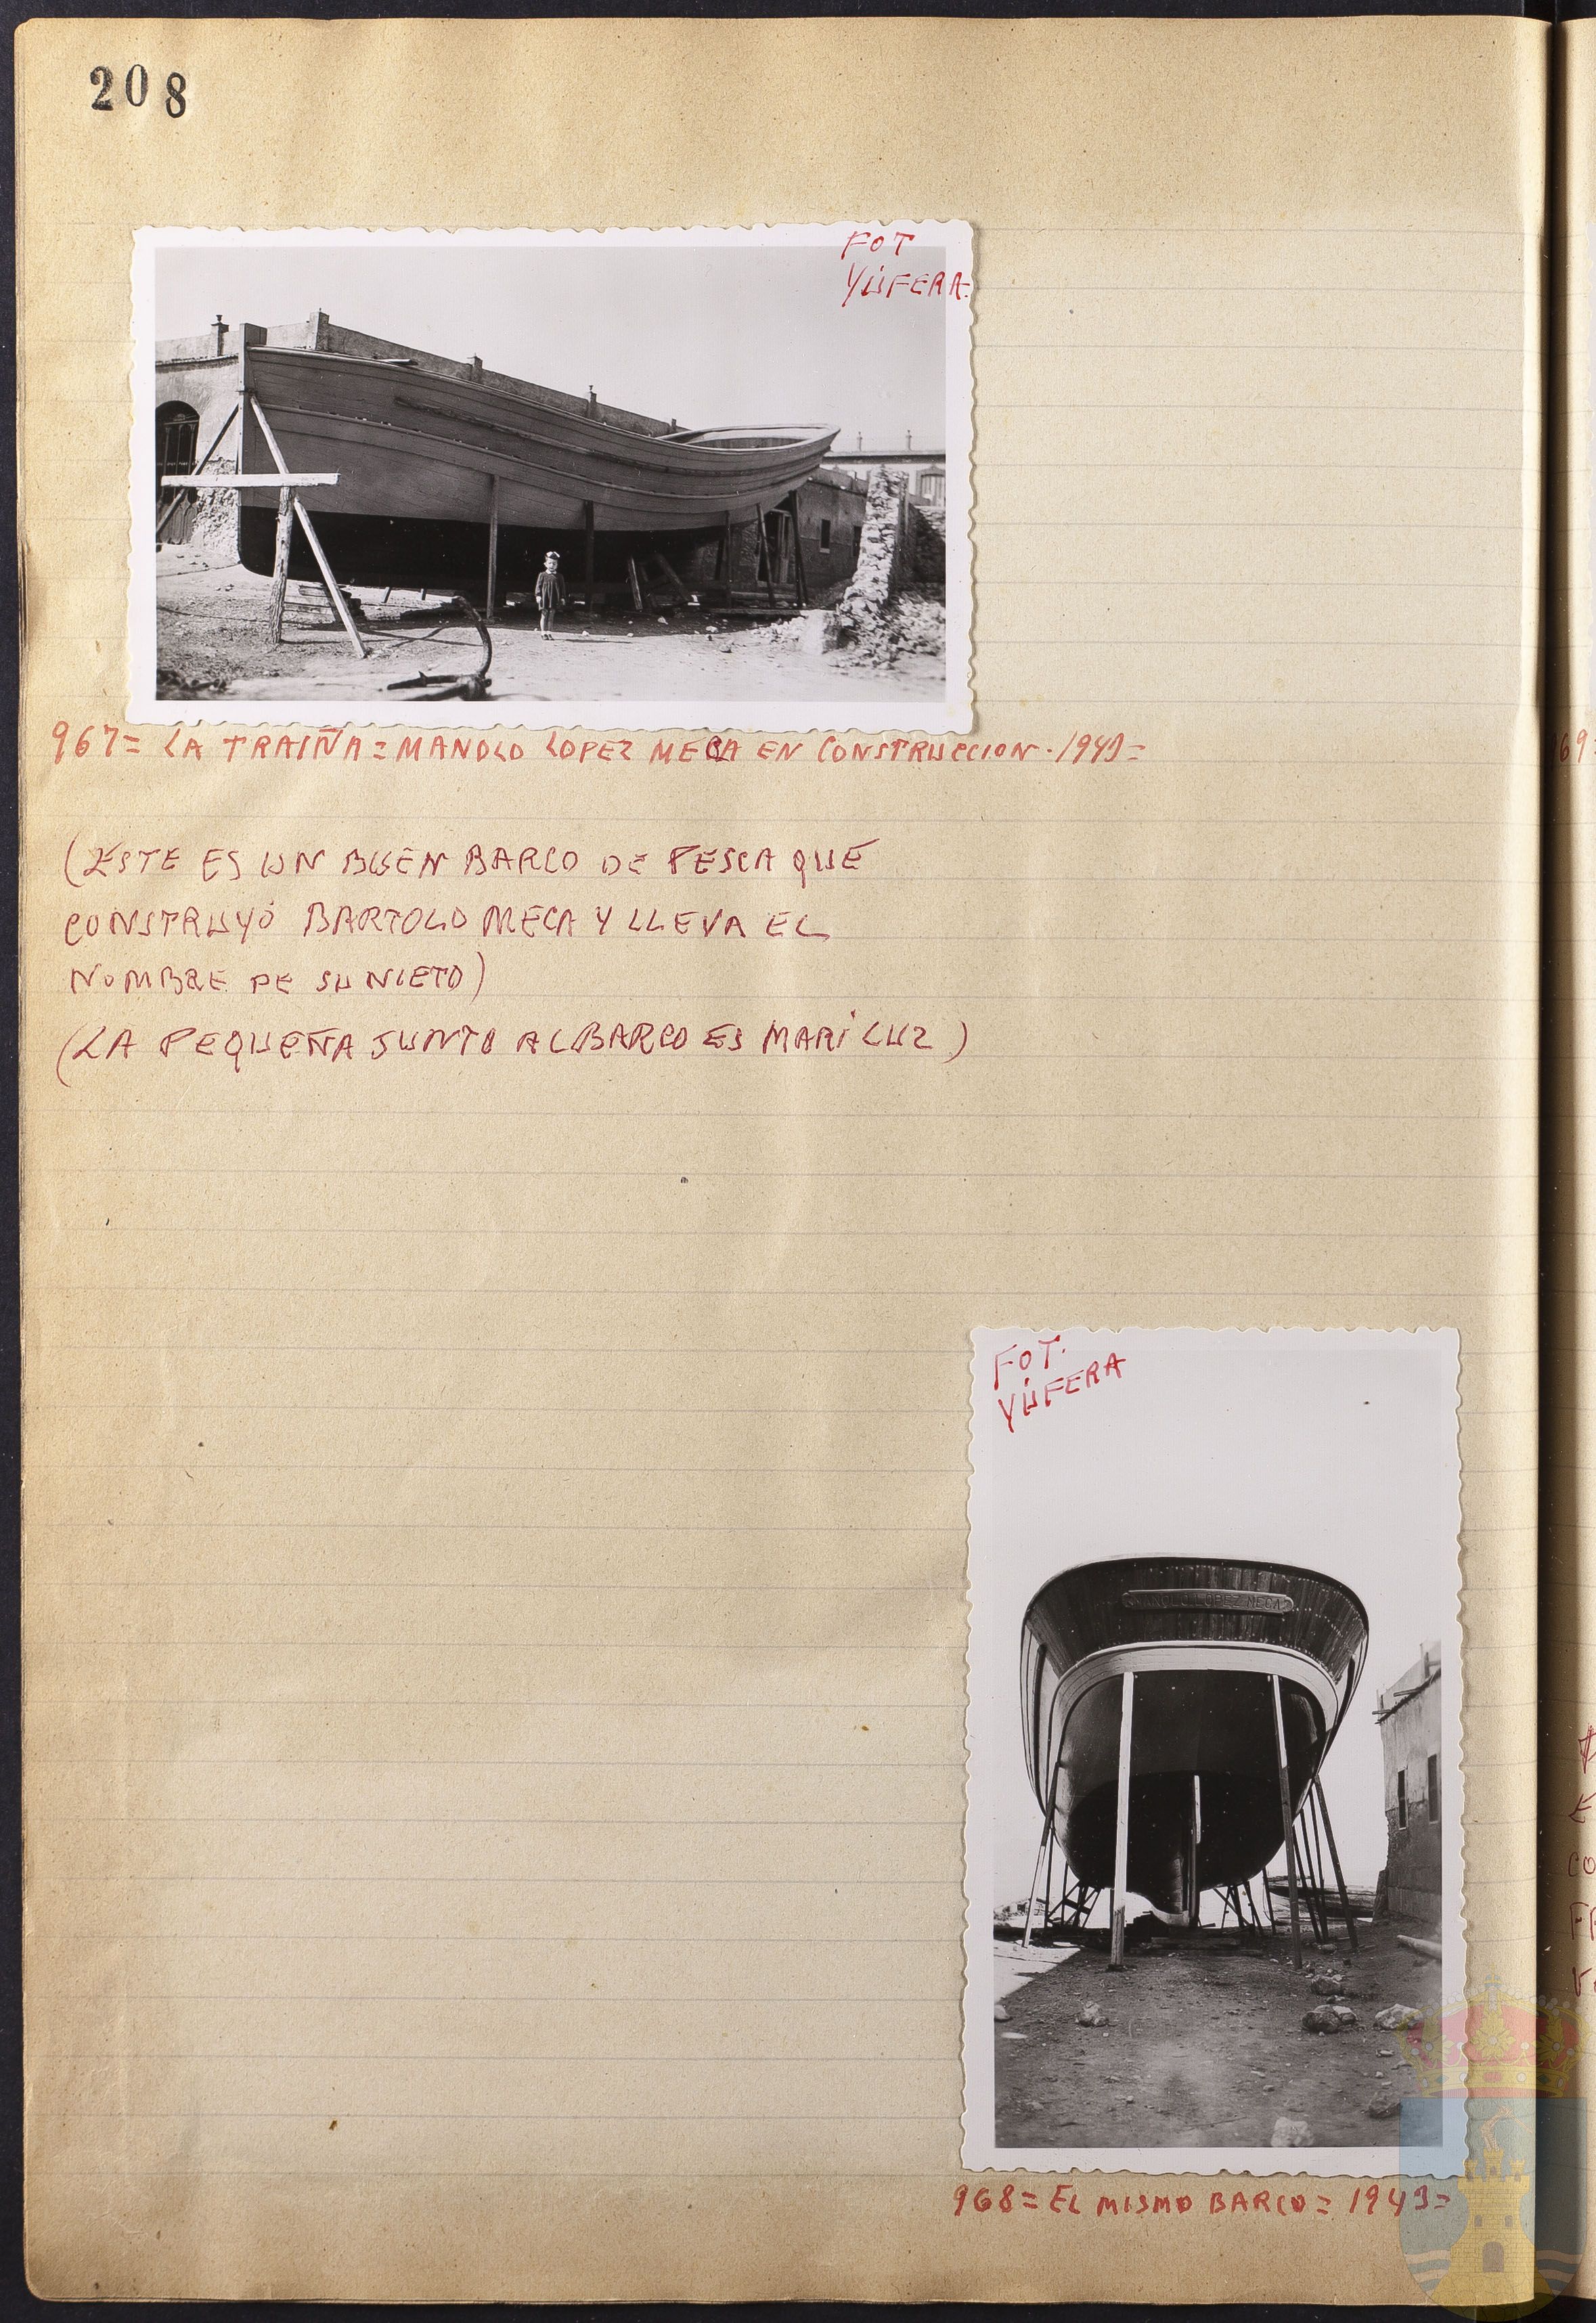 208
FOT
YÚFERA
967= LA TRAIÑA= MANOLO LOPEZ MECA EN CONSTRUCCION. 1943=
(ESTE ES UN BUEN BARCO DE PESCA QUE
CONSTRUYÓ BARTOLO MECA Y LLEVA EL
NOMBRE DE SU NIETO)
(LA PEQUEÑA JUNTO AL BARCO ES MARI LUZ)
FOT.
YÚFERA
MANOLO LOPEZ MECA
968= EL MISMO BARCO= 1943=